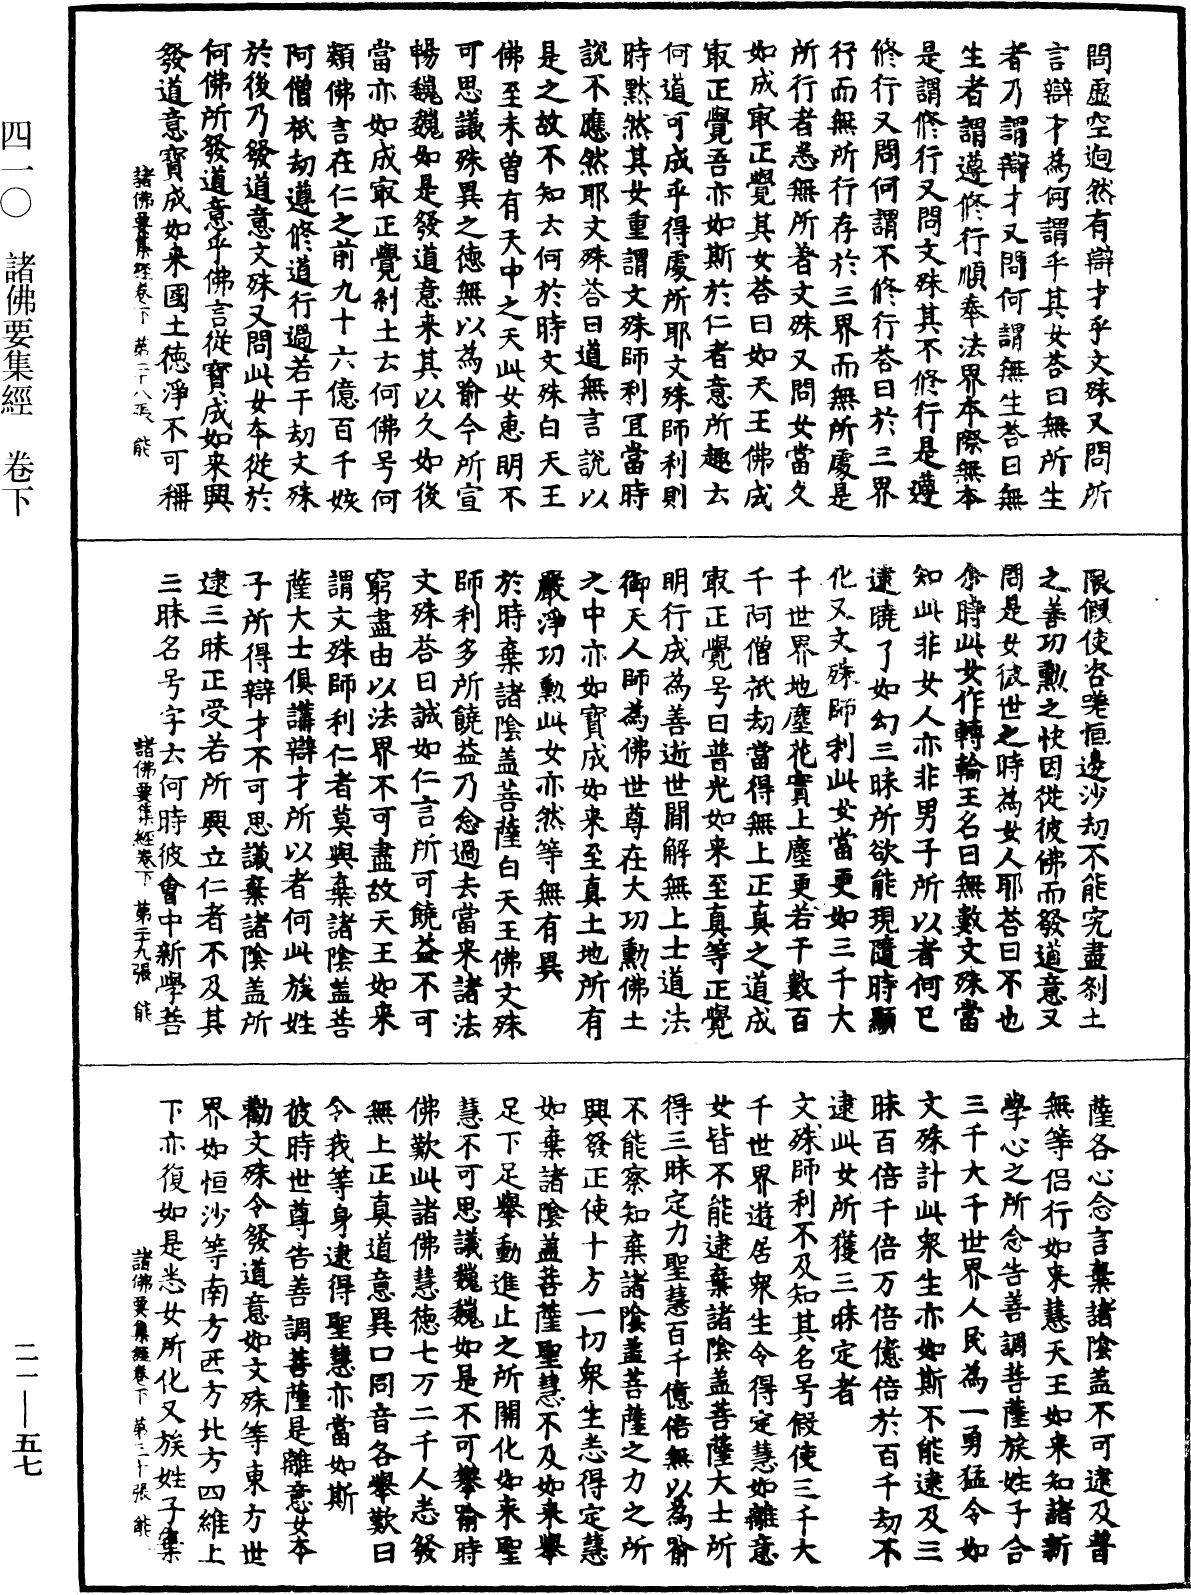 問虛空逈然有辯才乎文殊又問所
言辯才為何謂乎其女荅曰無所生
者乃謂辯才又問何謂無生荅曰無
生者謂遵修行順奉法界本際無本
是謂修行又問文殊其不修行是遵
修行又問何謂不修行荅曰於三界
行而無所行存於三界而無所處是
所行者悉無所著文殊又問女當久
如成㝡正覺其女荅曰如天王佛成
㝡正覺吾亦如斯於仁者意所趣云
何道可成乎得處所耶文殊師利則
時默然其女重謂文殊師利宜當時
說不應然耶文殊荅曰道無言說以
是之故不知云何於時文殊白天王
佛至未曽有天中之天此女惠明不
可思議殊異之德無以為喻今所宣
暢巍巍如是發道意来其以久如後
當亦如成㝡正覺剎土云何佛号何
類佛言在仁之前九十六億百千姟
阿僧柢劫遵修道行過若干劫文殊
於後乃發道意文殊又問此女本從於
何佛所發道意乎佛言從寶成如来興
發道意寶成如来國土德淨不可稱
諸佛要集經卷下 第二十八張 能
限假使咨嗟恒邊沙劫不能究盡剎土
之善功勳之快因從彼佛而發道意又
問是女彼世之時為女人耶荅曰不也
尒時此女作轉輪王名曰無數文殊當
知此非女人亦非男子所以者何已
逮曉了如幻三昧所欲能現隨時顯
化又文殊師利此女當更如三千大
千世界地塵花實上塵更若干數百
千阿僧祇劫當得無上正真之道成
㝡正覺号曰普光如来至真等正覺
明行成為善逝世間解無上士道法
御天人師為佛世尊在大功勳佛土
之中亦如寶成如来至真土地所有
嚴淨功勳此女亦然等無有異
於時棄諸陰盖菩薩白天王佛文殊
師利多所饒益乃念過去當来諸法
文殊荅曰誠如仁言所可饒益不可
窮盡由以法界不可盡故天王如来
謂文殊師利仁者莫與棄諸陰盖菩
薩大士俱講辯才所以者何此族姓
子所得辯才不可思議棄諸陰盖所
逮三昧正受若所興立仁者不及其
三昧名号字云何時彼會中新學菩
諸佛要集經卷下 第二十九張 能
薩各心念言棄諸陰盖不可逮及普
無等侣行如来慧天王如来知諸新
學心之所念告善調菩薩族姓子合
三千大千世界人民為一勇猛令如
文殊計此衆生亦如斯不能逮及三
昧百倍千倍万倍億倍於百千劫不
逮此女所獲三昧定者
文殊師利不及知其名号假使三千大
千世界遊居衆生令得定慧如離意
女皆不能逮棄諸陰盖菩薩大士所
得三昧定力聖慧百千億倍無以為喻
不能察知棄諸陰盖菩薩之力之所
興發正使十方一切衆生悉得定慧
如棄諸陰盖菩薩聖慧不及如来舉
足下足舉動進止之所開化如来聖
慧不可思議巍巍如是不可攀喻時
佛歎此諸佛慧德七万二千人悉發
無上正真道意異口同音各舉歎曰
令我等身逮得聖慧亦當如斯
彼時世尊告善調菩薩是離意女本
勸文殊令發道意如文殊等東方世
界如恒沙等南方西方北方四維上
下亦復如是悉女所化又族姓子寗集
諸佛要集經卷下 第三十張 能
四一〇 諸佛要集經 卷下
二一—五七